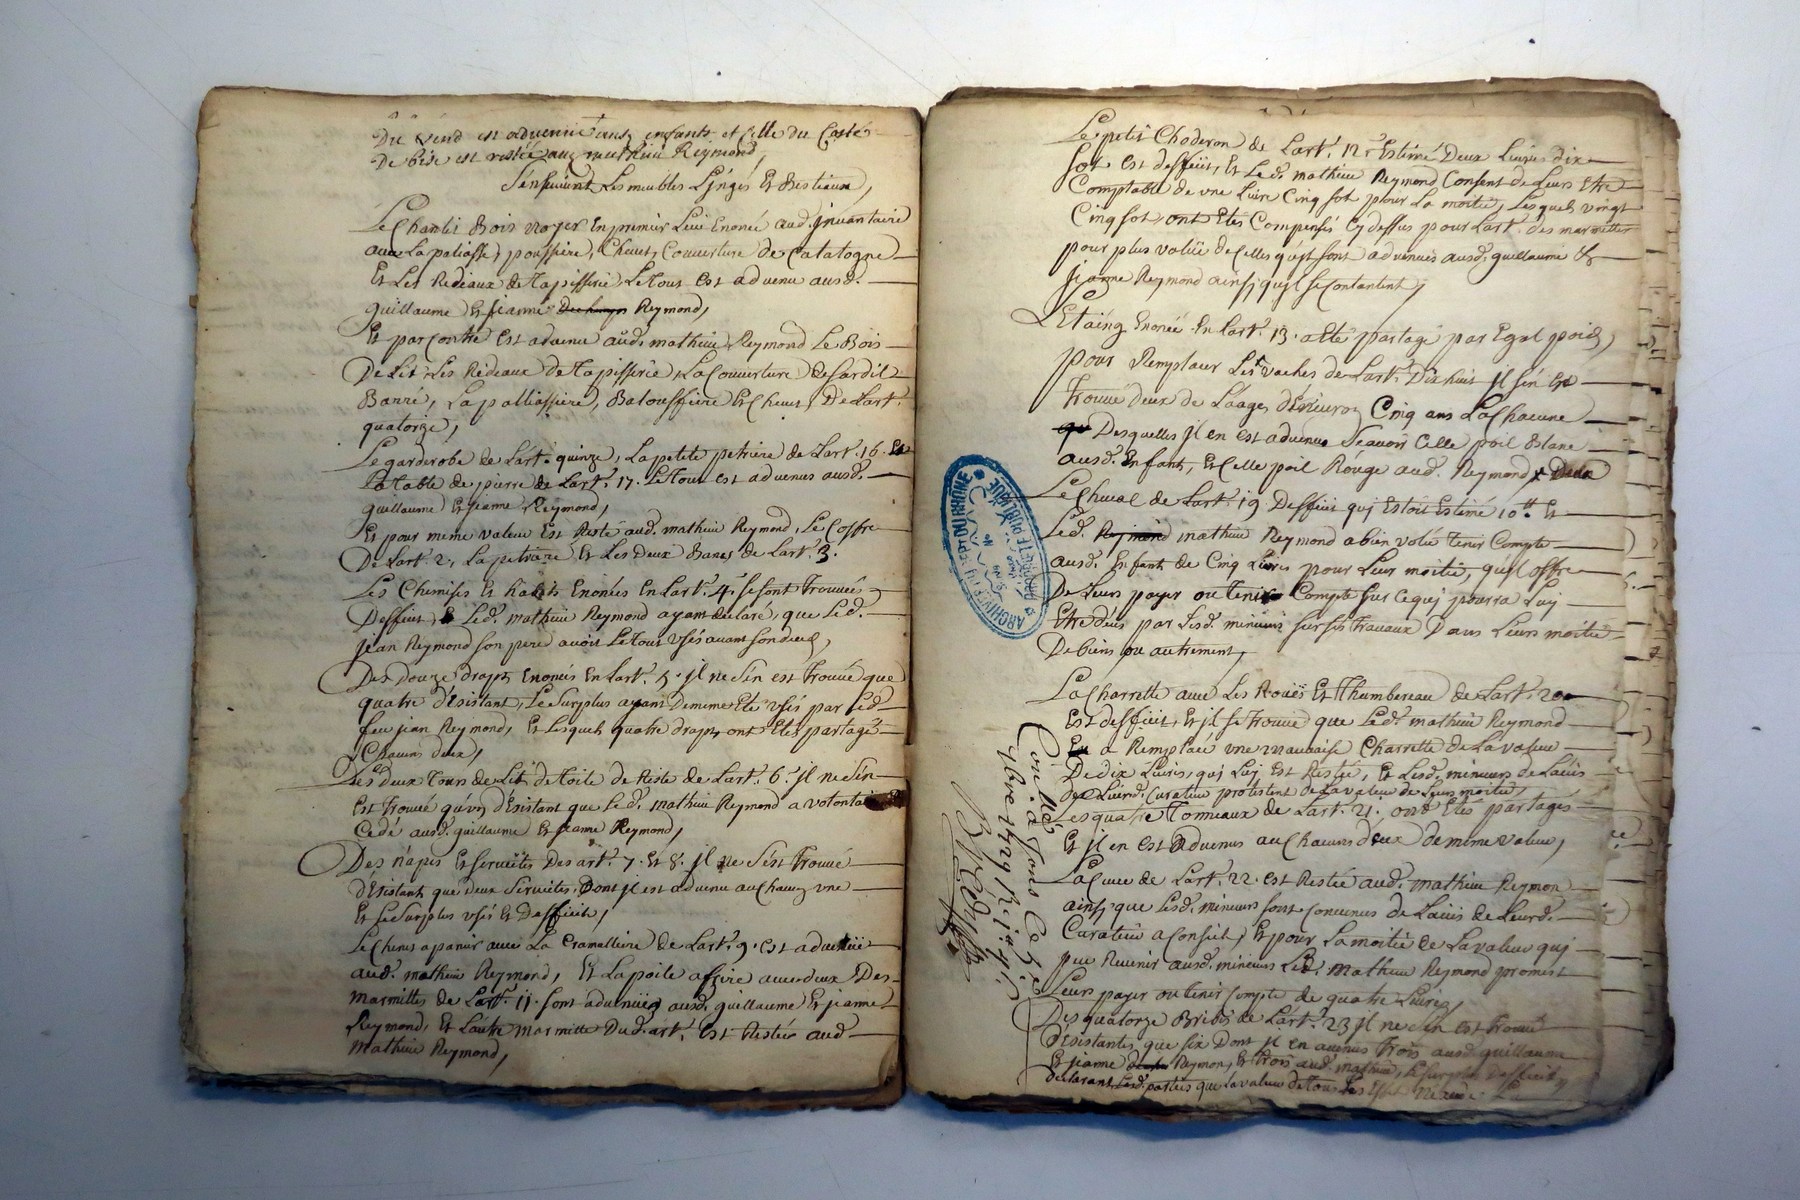 Du vend est advenue ausd. enfants et celle du Costé
De bise est restée aud. mathieu Reymond,
S'ensuivent Les meubles Linges Et Bestieaux,
Le Chaslit Bois noyer En premier Lieu Enoncé aud. jnvantaire
avec La paliasse, poussiere, Chevet, Couverture de Catalogne
Et Les Rideaux de tapisserie Le tout est advenu ausd.
guillaume Et jeanne Reymond,
Et par contre Est advenu aud. mathieu Reymond Le Bois
De Lit, Les Rideaux de tapisserie, La Couverture de sardit
Banne, La palliassiere, Baloussiere Et Chevet, De L'art.
quatorze,
Le garderobe de L'art. quinze, La petite petriere de L'art. 16. Et
La table de pierre de L'art. 17. Le tout est advenus ausd.
guillaume Et jeanne Reymond,
Et pour meme valeur Est Resté aud. mathieu Reymond, Le Coffre
De L'art. 2, La petriere Et Les Deux Bancs de L'art. 3.
Les Chemises Et habits Enoncés En L'art. 4. se sont trouvés
Deffieut, Led. mathieu Reymond ayant declaré, que Led.
jean Reymond son pere avoit Le tout usés avant son deces,
Des douze draps Enoncés En L'art. 5. jl ne s'en est trouvé que
quatre d'Existant, Le Surplus ayant De meme Eté usés par Led.
feu jean Reymond, Et Lesquels quatre draps ont Etes partagé
Chacuns deux,
Les deux tours de Lit de toile de Riste de L'art. 6. jl ne s'en
Est trouvé qu'un d'Existant que Led. mathieu Reymond a
Cedé ausd. guillaume Et jeanne Reymond,
Des napes Et serviettes Des art. 7. Et 8. jl ne s'est trouvé
d'Existant que deux Serviettes, Dont jl est advenu au Chacun une
Et Le Surplus usés Et Deffieut,
Le Chenet a panir avec La Cramalliere de L'art. 9. est advenüe
aud. mathieu Reymond, Et La poile a frire avec deux Des
marmittes de L'art. 11. sont advenües ausd. guillaume Et jeanne
Reymond, Et L'autre marmitte Dud. art. Est Restée aud.
Mathieu Reymond,
Le petit Choderon de L'art. 12. Estimé Deux Livres dix
sols est deffieut, Et Led. mathieu Reymond Consent de Leurs Etre
Comptable de une Livre Cinq sol pour La moitié, Lesquels vingt
Cinq sol ont Etes Compensés Cy dessus pour L'art. des marmittes
pour plus valüe de Celles qui sont advenues ausd. guillaume &
jeanne Reymond ainsi qu'jl se Contantent,
L'Etaing Enoncé En L'art. 13. a Eté partagé par Egal poid,
pour Remplacer Les vaches de L'art. Dixhuit jl s'en Est
trouvé deux de L'aage d'environ Cinq ans La Chacune
Desquelles jl en est advenue Seavoir Celle poil Blanc
ausd. Enfants, Et Celle poil Rouge aud. Reymond
Le Cheval de L'art. 19 Deffieut qui Estoit Estimé 10 ₶ Et
Led. mathieu Reymond a bien volu tenir Compte
ausd. Enfants de Cinq Livres pour Leur moitié, qu'jl offre
De Leurs payer ou tenir Compte sur Ce qui pourra Luy
Etre deüs par Lesd. mineurs sur ses travaux Dans Leurs moitié
De biens ou autrement,
La Charrette avec Les Roües Et Thumbereau de L'art. 20
Est deffieut, Et jl se trouve que Led. mathieu Reymond
a Remplacé une mauvaise Charrette de La valeur
De dix Livres, qui Luy Est Restée, Et Lesd. mineurs de L'aüis
de Leurd. Curateur protestent de La valeur de Leurs moitié,
Les quatre tonneaux de L'art. 21. ont Etés partagés
Et jl en est advenus au Chacuns deux de meme valeur,
La Cuve de L'art. 22. est Restée aud. mathieu Reymon
ainsi que Lesd. mineurs sont Convenus de L'aüis de Leurd.
Curateur a Conseil, Et pour La moitié de La valeur qui
peu Revenir ausd. mineurs Led. Mathieu Reymond promest
Leurs payer ou tenir Compte de quatre Livres,
Des quatorze Brebis de L'art. 23 jl ne s'en est trouvé
d'Existantes que six Dont jl en avenus trois ausd. guillaume
Et jeanne Reymon, Et trois aud. mathieu, Le surplus Deffieut,
declarant Lesd. parties que La valeur de tous Les
ARCHIVES DU SEPT DU RHONE
PUBLIQUE